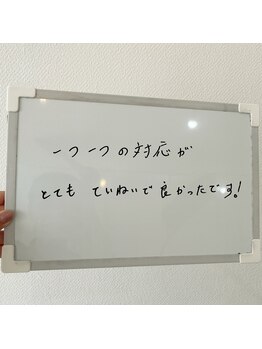 一つ一つの対応が
とても ていねいで良かったです!